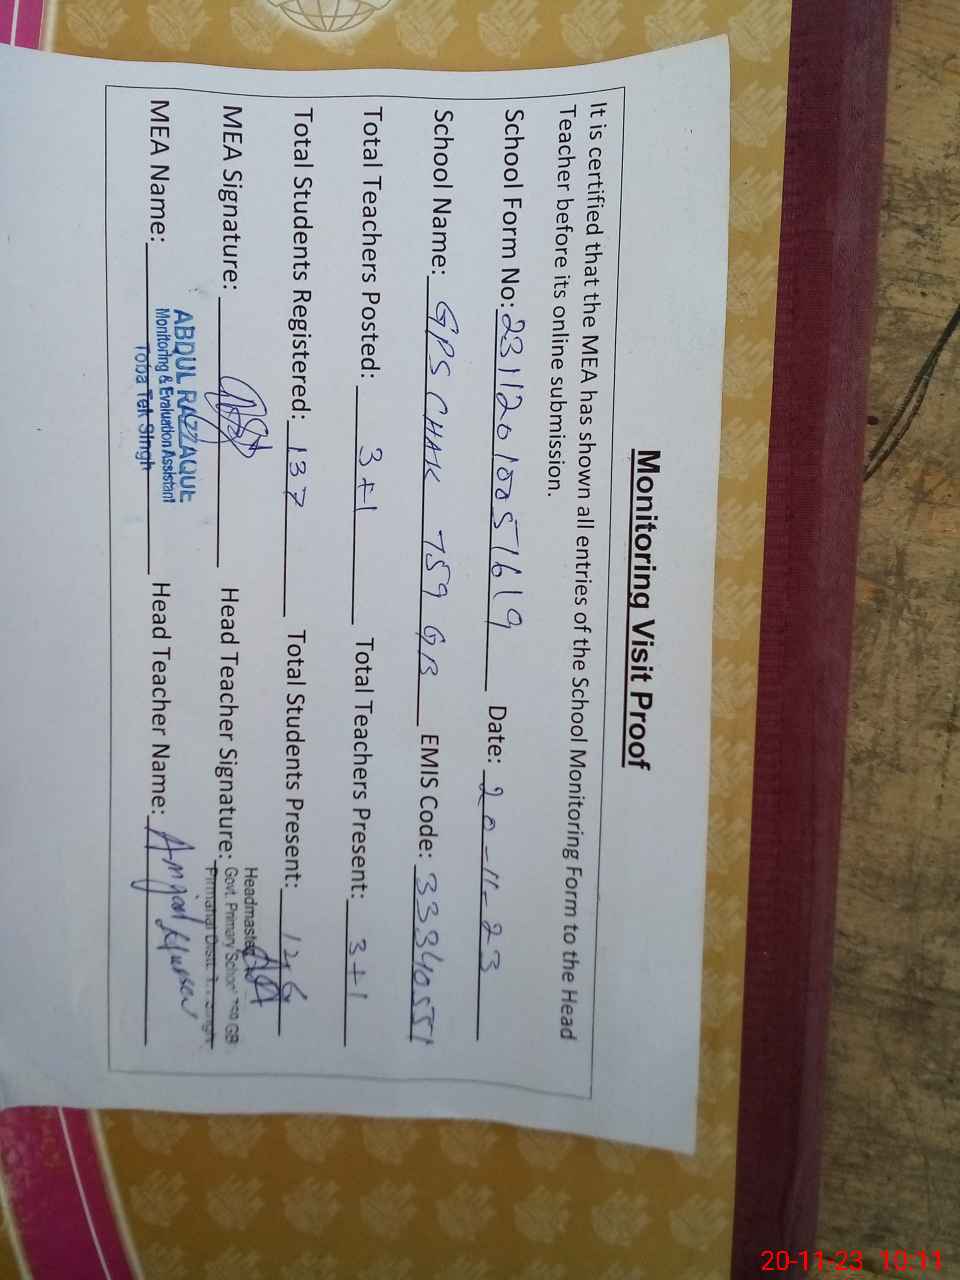 Monitoring Visit Proof
It is certified that the MEA has shown all entries of the School Monitoring Form to the Head
Teacher before its online submission.
School Form No: 231120100051619 Date: 20-11-23
School Name: GPS CHAK 759 GB EMIS Code: 33340551
Total Teachers Posted: 3+1 Total Teachers Present: 3+1
Total Students Registered: 137 Total Students Present: 126
MEA Signature: Head Teacher Signature:
Headmaster
Govt. Primary School 759 GB
Pirmahal Distt. T.T. Singh
ABDUL RAZZAQUE
Monitoring & Evaluation Assistant
Toba Tek Singh
MEA Name: Head Teacher Name: Amjad Hussain
20-11-23 10:11